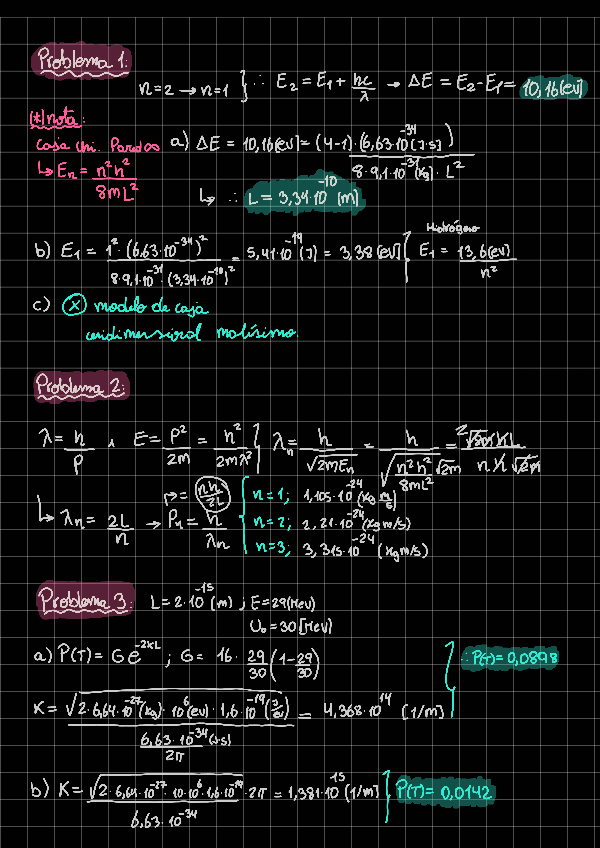 Problema 1:
n=2 → n=1 } ∴ E₂ = E₁ + hc/λ → ΔE = E₂-E₁ = 10,16[eV]
(*) nota:
caja uni. Paredes
↳ Eₙ = n²h²/8mL²
a) ΔE = 10,16[eV] = (4-1)·(6,63·10⁻³⁴[J·s])/8·9,1·10⁻³¹[kg]·L²
↳ ∴ L = 3,34·10⁻¹⁰ [m]
b) E₁ = 1²·(6,63·10⁻³⁴)²/8·9,1·10⁻³¹·(3,34·10⁻¹⁰)² = 5,41·10⁻¹⁹[J] = 3,38[eV] { Hidrógeno E₁ = 13,6[eV]/n²
c) (X) modelo de caja
unidimensional malísimo.
Problema 2:
λ = h/p ; E = P²/2m = h²/2mλ² } λₙ = h/√2mEₙ = h/√(n²h²/8mL²) √2m = 2√8m h L/n h √2m
↳ λₙ = 2L/n → Pₙ = h/λₙ
p = nh/2L
n=1; 1,105·10⁻²⁴ [kg m/s]
n=2; 2,21·10⁻²⁴ (kg m/s)
n=3; 3,315·10⁻²⁴ (kg m/s)
Problema 3: L = 2·10⁻¹⁵ [m] ; E = 29[MeV]
U₀ = 30[MeV]
a) P(T) = G e⁻²ᴷᴸ ; G = 16· 29/30 (1-29/30)
∴ P(T) = 0,0898
K = √2·6,64·10⁻²⁷(kg)·10⁶(eV)·1,6·10⁻¹⁹(J/eV) / 6,63·10⁻³⁴(J·s)/2π = 4,368·10¹⁴ [1/m]
b) K = √2·6,64·10⁻²⁷·10·10⁶·1,6·10⁻¹⁹ ·2π / 6,63·10⁻³⁴ = 1,381·10¹⁵ [1/m] } P(T) = 0,0142